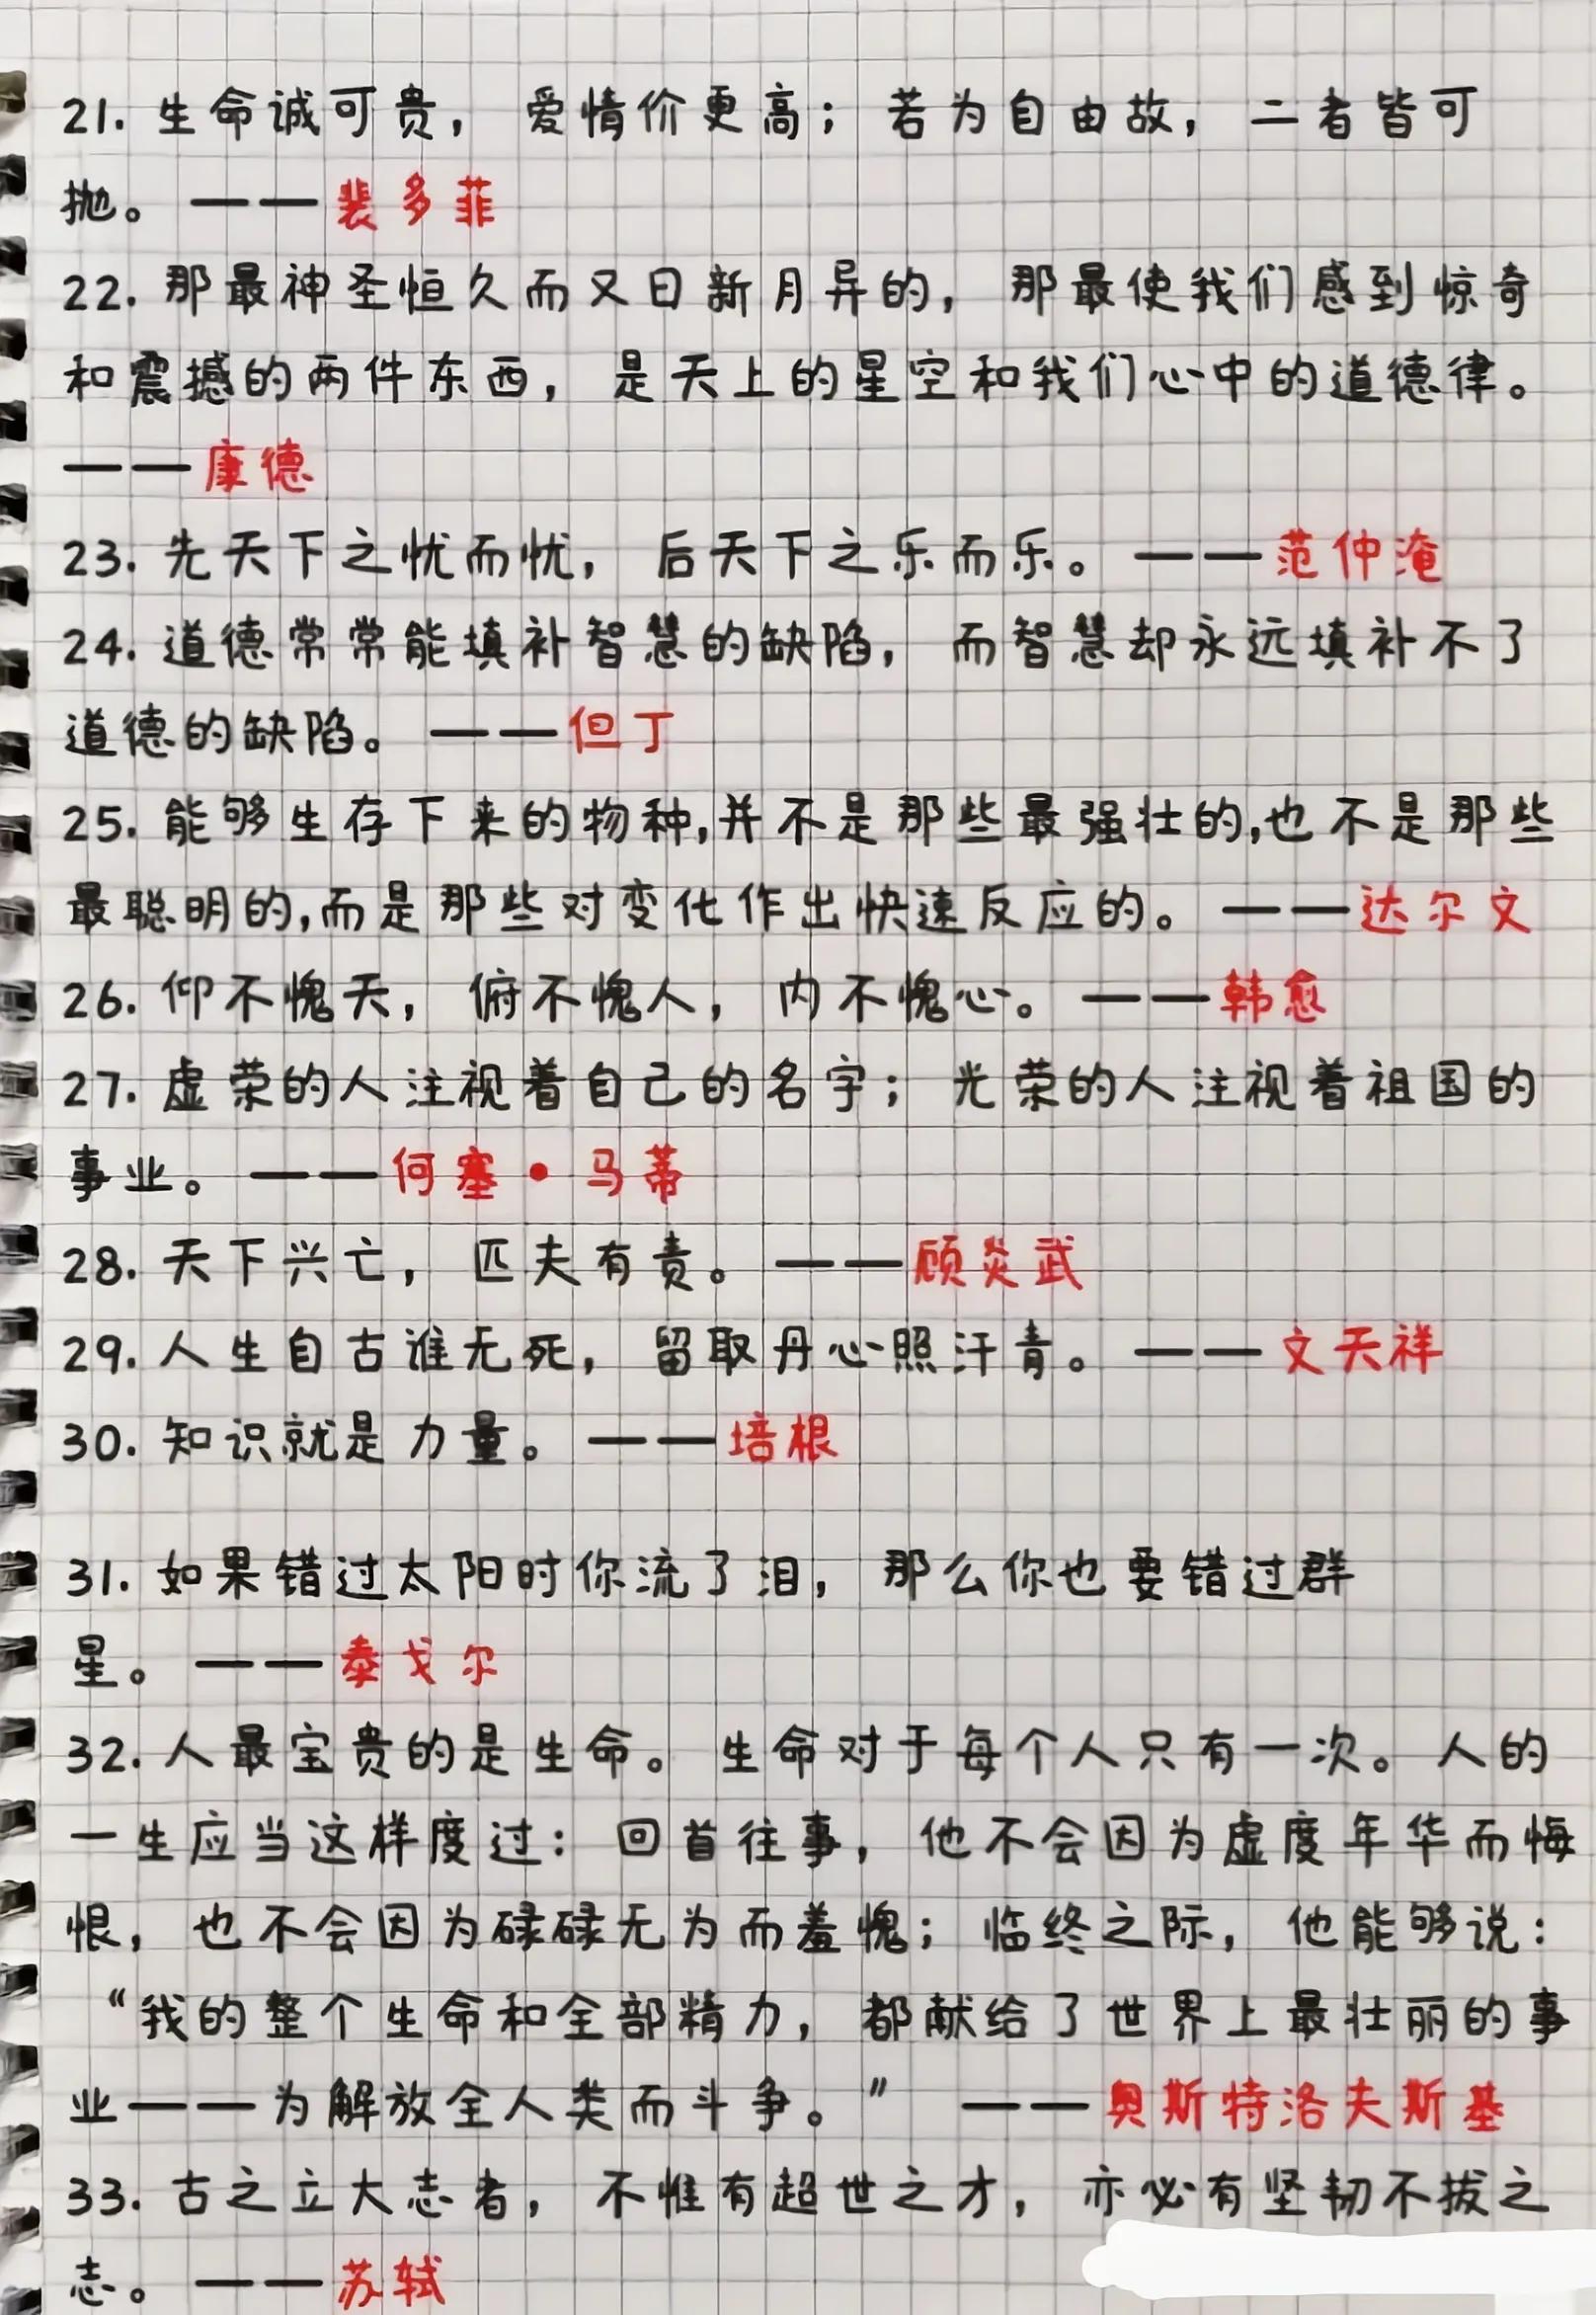 21. 生命诚可贵，爱情价更高；若为自由故，二者皆可
抛。——裴多菲
22. 那最神圣恒久而又日新月异的，那最使我们感到惊奇
和震撼的两件东西，是天上的星空和我们心中的道德律。
——康德
23. 先天下之忧而忧，后天下之乐而乐。——范仲淹
24. 道德常常能填补智慧的缺陷，而智慧却永远填补不了
道德的缺陷。——但丁
25. 能够生存下来的物种,并不是那些最强壮的,也不是那些
最聪明的,而是那些对变化作出快速反应的。——达尔文
26. 仰不愧天，俯不愧人，内不愧心。——韩愈
27. 虚荣的人注视着自己的名字；光荣的人注视着祖国的
事业。——何塞·马蒂
28. 天下兴亡，匹夫有责。——顾炎武
29. 人生自古谁无死，留取丹心照汗青。——文天祥
30. 知识就是力量。——培根
31. 如果错过太阳时你流了泪，那么你也要错过群
星。——泰戈尔
32. 人最宝贵的是生命。生命对于每个人只有一次。人的
一生应当这样度过：回首往事，他不会因为虚度年华而悔
恨，也不会因为碌碌无为而羞愧；临终之际，他能够说：
“我的整个生命和全部精力，都献给了世界上最壮丽的事
业——为解放全人类而斗争。”——奥斯特洛夫斯基
33. 古之立大志者，不惟有超世之才，亦必有坚韧不拔之
志。——苏轼